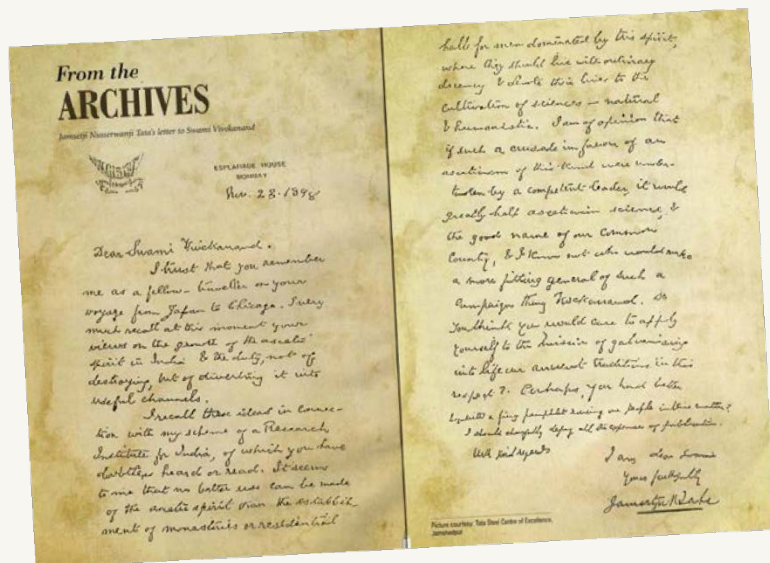 From the
ARCHIVES
Jamsetji Nusserwanji Tata's letter to Swami Vivekanand
ESPLANADE HOUSE
BOMBAY
Nov. 23. 1898
Dear Swami Vivekanand.
I trust that you remember
me as a fellow-traveller on your
voyage from Japan to Chicago. I very
much recall at this moment your
views on the growth of the ascetic
spirit in India & the duty, not of
destroying, but of diverting it into
useful channels.
I recall these ideas in connec-
tion with my scheme of a Research
Institute for India, of which you have
doubtless heard or read. It seems
to me that no better use can be made
of the ascetic spirit than the establish
ment of monasteries or residential
halls for men dominated by this spirit,
where they should live with ordinary
decency & devote their lives to the
cultivation of sciences — natural
& humanistic. I am of opinion that
if such a crusade in favour of an
asceticism of this kind were under-
taken by a competent leader, it would
greatly help asceticism, science, &
the good name of our common
country, & I know not who would make
a more fitting general of such a
campaign than Vivekanand. Do
you think you would care to apply
yourself to the mission of galvanizing
into life our ancient traditions in this
respect? Perhaps, you had better
a fiery pamphlet our people in this matter?
I should cheerfully defray all the expenses of publication.
With kind regards
I am, dear Swami
Yours faithfully
Jamsetji N. Tata
Picture courtesy: Tata Steel Centre of Excellence,
Jamshedpur